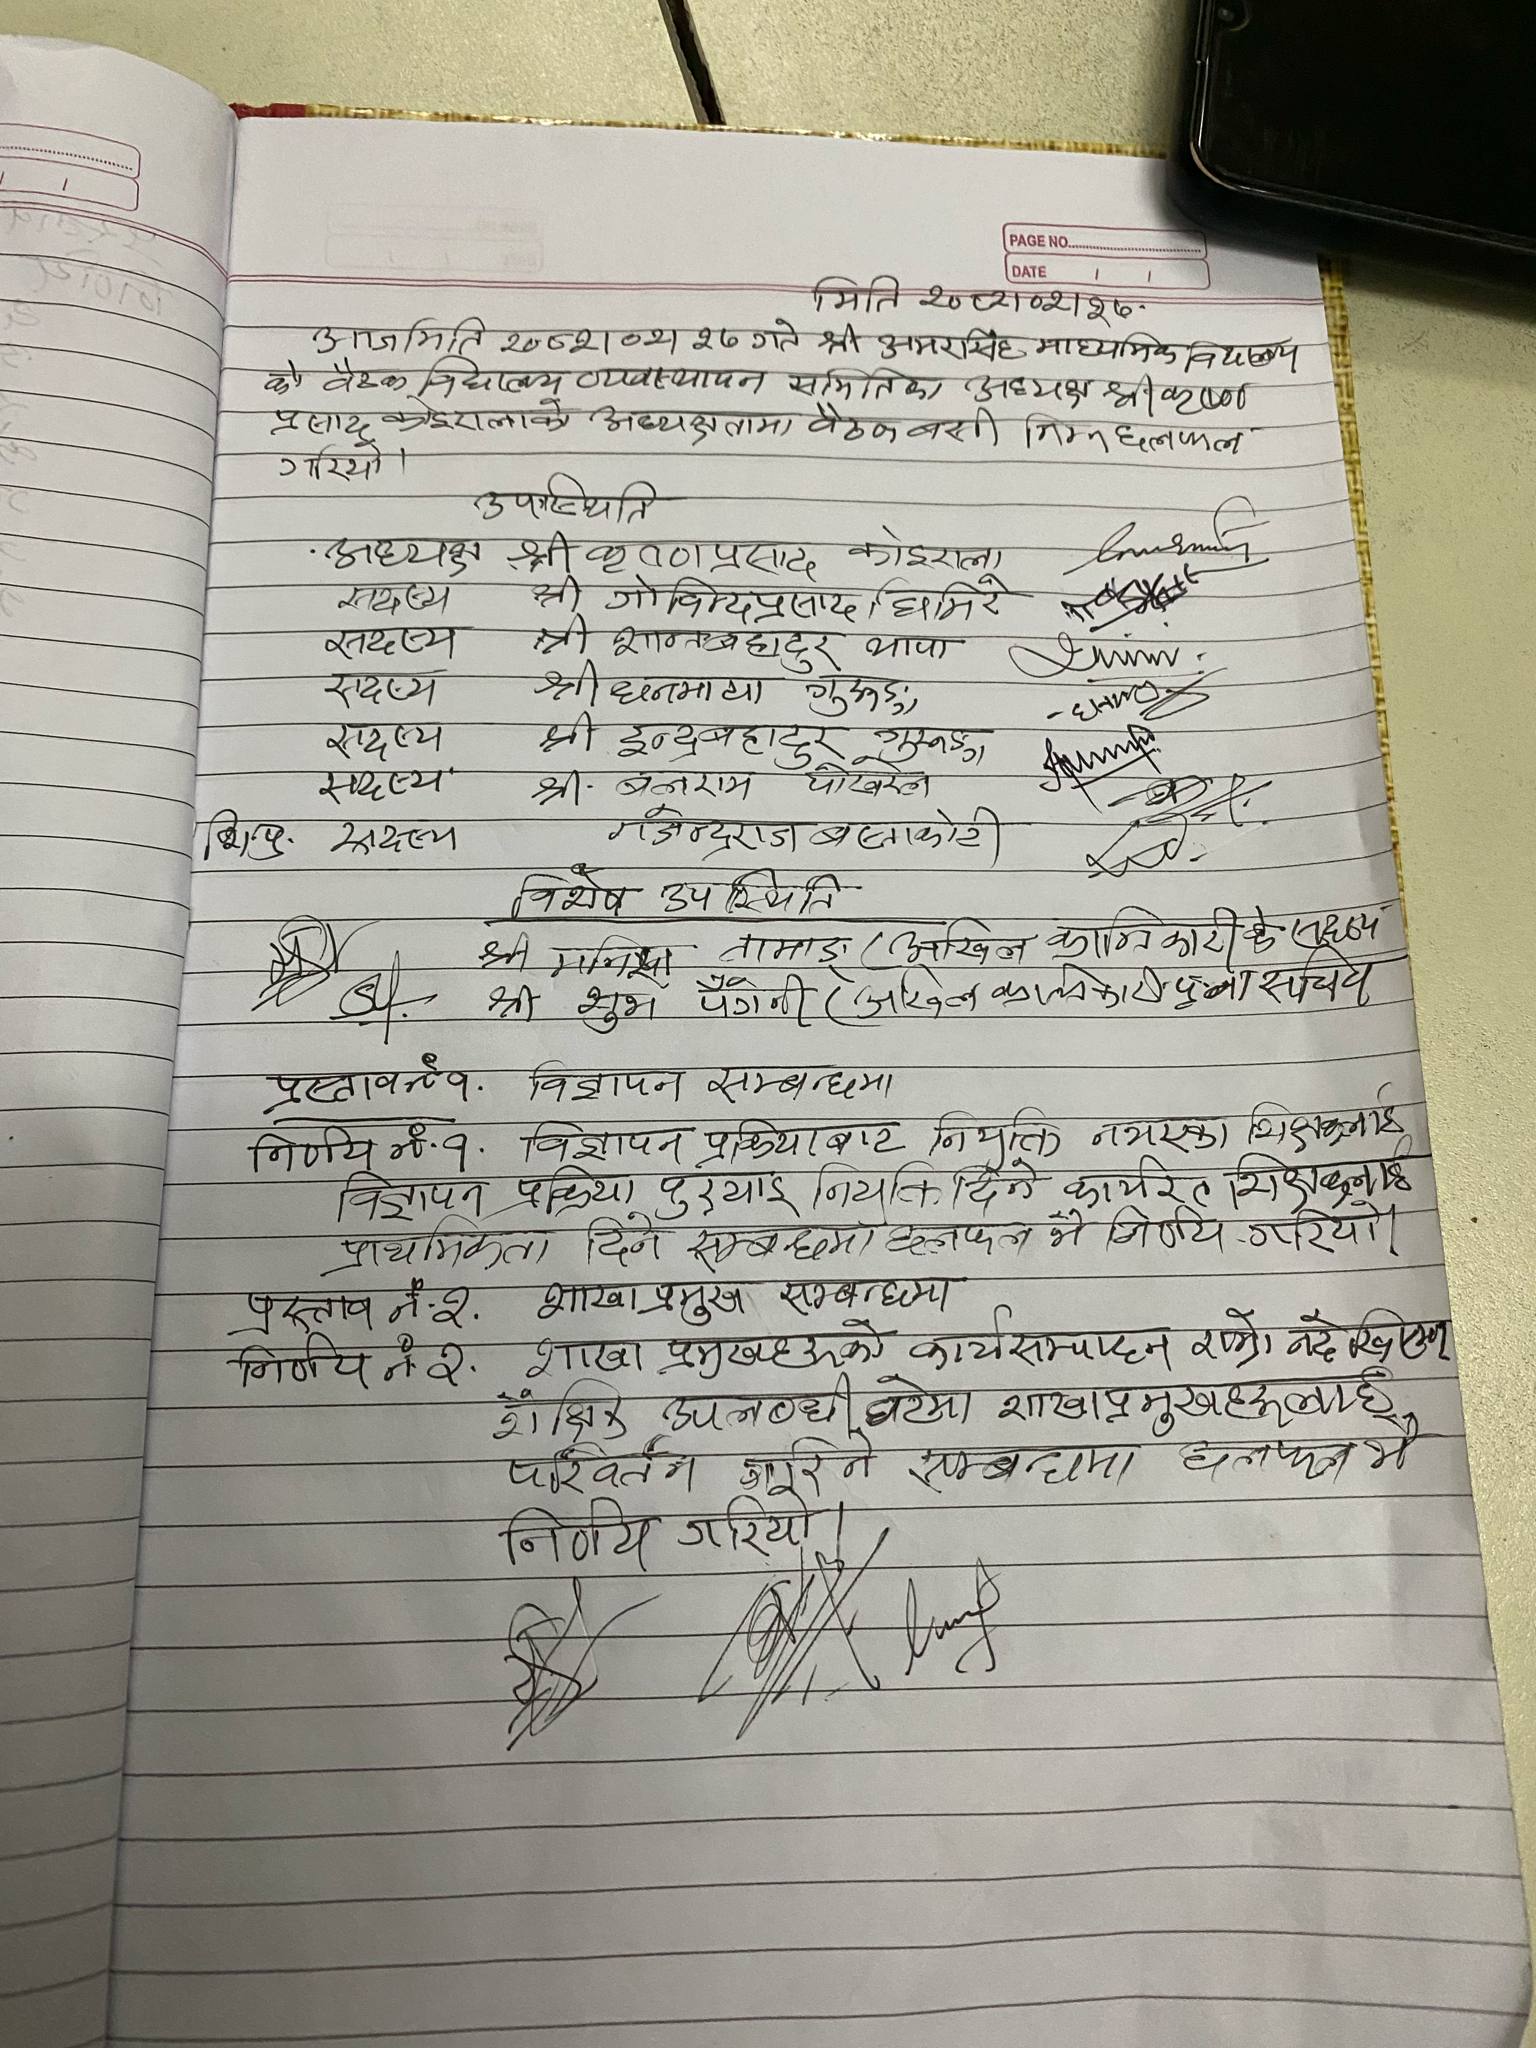 PAGE NO.
DATE / /
मिति २०८२।०२।२७.
आज मिति २०८२।०२।२७ गते श्री अमरसिंह माध्यमिक विद्यालय
को वैठक विद्यालय व्यवस्थापन समितिका अध्यक्ष श्री कृष्ण
प्रसाद कोइरालाको अध्यक्षतामा वैठक बसी निम्न छलफल
गरियो।
उपस्थिति
अध्यक्ष श्री कृष्ण प्रसाद कोइराला
सदस्य श्री गोविन्दप्रसाद घिमिरे
सदस्य श्री शान्तबहादुर थापा
सदस्य श्री धनमाया गुरूङ्ग
सदस्य श्री इन्द्रबहादुर गुरूङ्ग
सदस्य श्री बलराम पोखरेल
शि.प्र. सदस्य गजेन्द्रराज बस्ताकोटी
विशेष उपस्थिति
श्री तामाङ (अखिल क्रान्तिकारी के सदस्य
श्री शुभ पंगेनी (अखिल क्रान्तिकारी सचिव
प्रस्ताव नं १. विज्ञापन सम्बन्धमा
निर्णय नं. १. विज्ञापन प्रक्रियाबाट नियुक्ति नभएका शिक्षकलाई
विज्ञापन प्रक्रिया पुर्‍याइ नियुक्ति दिने कार्यरत शिक्षकलाई
प्राथमिकता दिने सम्बन्धमा छलफल भै निर्णय गरियो।
प्रस्ताव नं. २. शाखा प्रमुख सम्बन्धमा
निर्णय नं २. शाखा प्रमुखहरूको कार्यसम्पादन राम्रो नदेखिएमा
शैक्षिक उपलब्धी घटेमा शाखाप्रमुखहरूलाई
परिवर्तन गरिने सम्बन्धमा छलफल भै
निर्णय गरियो।